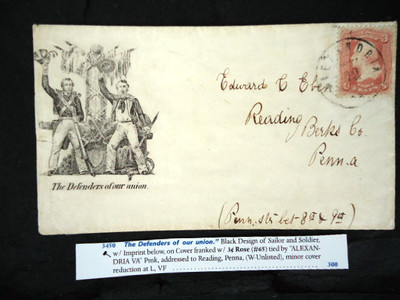 ALEXANDRIA
Edward C Eben
Reading
Berks Co.
Penn.a
The Defenders of our union.
(Penn. str bet- 8th & 9th)
5450 The Defenders of our union." Black Design of Sailor and Soldier,
w/ Imprint below, on Cover franked w/ 3¢ Rose (#65) tied by "ALEXAN-
DRIA VA" Pmk, addressed to Reading, Penna, (W-Unlisted), minor cover
reduction at L, VF 300